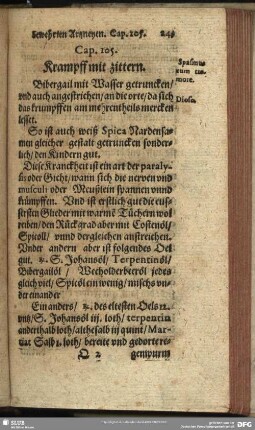 bewehrten Artzneyen. Cap. 105. 243
Cap. 105.
Krampff mit zittern.
Spasmus
cum tre-
more.
Bibergail mit Wasser getruncken/
vnd auch angestrichen/ an die orte/ da sich
Diosc.
das krümpffen am mehrentheils mercken
lesset.
So ist auch weiß Spica Nardensa-
men gleicher gestalt getruncken sonder-
lich/ den Kindern gut.
Diese Kranckheit ist ein art der paraly-
sis oder Gicht/ wann sich die nerven vnd
musculi oder Meußlein spannen vnnd
krümpffen. Vnd ist erstlich gut die euf-
sersten Glieder mit warmē Tüchern wol
reiben/ den Rückgrad aber mit Costenöl/
Spicöll/ vnnd dergleichen anstreichen.
Vnder andern aber ist folgendes Oel
gut. ℞. S. Johansöl/ Terpentinöl/
Bibergailöl/ Wecholderbeeröl jedes
gleich viel/ Spicöl ein wenig/ mischs vn-
der einander
Ein anders/ ℞. des eltesten Oels
S. Johansöl iij. loth/ terpentin
anderthalb loth/ althesalb ein quint/ Mar-
tiat Salb 1. loth/ bereite vnd gedörte re-
Q 2 genwurm
SLUB
DFG